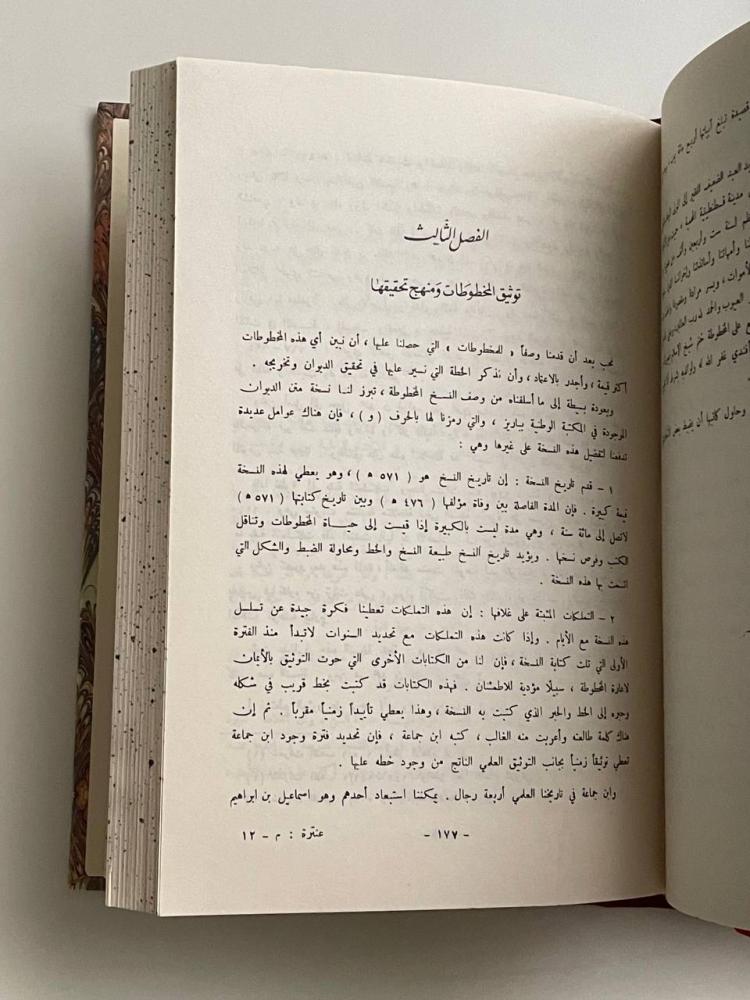 الفصل الثالث
توثيق المخطوطات ومنهج تحقيقها
نحب بعد أن قدمنا وصفاً « للمخطوطات » التي حصلنا عليها ، أن نبين أي هذه المخطوطات
أكثر قيمة ، وأجدر بالاعتماد ، وأن نذكر الخطة التي نسير عليها في تحقيق الديوان وتخريجه .
وبعودة بسيطة إلى ما أسلفناه من وصف النسخ المخطوطة ، تبرز لنا نسخة متن الديوان
الموجودة في المكتبة الوطنية بباريز ، والتي رمزنا لها بالحرف ( و ) ، فإن هناك عوامل عديدة
تدفعنا لتفضيل هذه النسخة على غيرها وهي :
١ - قدم تاريخ النسخة : إن تاريخ النسخ هو ( ٥٧١ ھ ) ، وهو يعطي لهذه النسخة
قيمة كبيرة . فإن المدة الفاصلة بين وفاة مؤلفها ( ٤٧٦ ھ ) وبين تاريخ كتابتها ( ٥٧١ ھ )
لاتصل إلى مائة سنة ، وهي مدة ليست بالكبيرة إذا قيست إلى حياة المخطوطات وتناقل
الكتب وفرص نسخها . ويؤيد تاريخ النسخ طبيعة النسخ والخط ومحاولة الضبط والشكل التي
اتسمت بها هذه النسخة .
٢ - التملكات المثبتة على غلافها : إن هذه التملكات تعطينا فكرة جيدة عن تسلسل
هذه النسخة مع الأيام . وإذا كانت هذه التملكات مع تحديد السنوات لاتبدأ منذ الفترة
الأولى التي تلت كتابة النسخة ، فإن لنا من الكتابات الأخرى التي حوت التوثيق بالأيمان
لاعارة المخطوطة ، سبيلاً مؤدية للاطمئنان . فهذه الكتابات قد كتبت بخط قريب في شكله
وحبره إلى الخط والحبر الذي كتبت به النسخة ، وهذا يعطي تأييداً زمنياً مقرباً . ثم إن
هناك كلمة طالعته وأعربت منه الغالب ، كتبه ابن جماعة ، فإن تحديد فترة وجود ابن جماعة
تعطي توثيقاً زمنياً بجانب التوثيق العلمي الناتج من وجود خطه عليها .
وابن جماعة في تاريخنا العلمي أربعة رجال . يمكننا استبعاد أحدهم وهو اسماعيل بن ابراهيم
- ١٧٧ -
عنترة : م - ١٢
قصيدة تبلغ أبياتها أربع
العبد الضعيف الفقير إلى
مدينة قسطنطينية